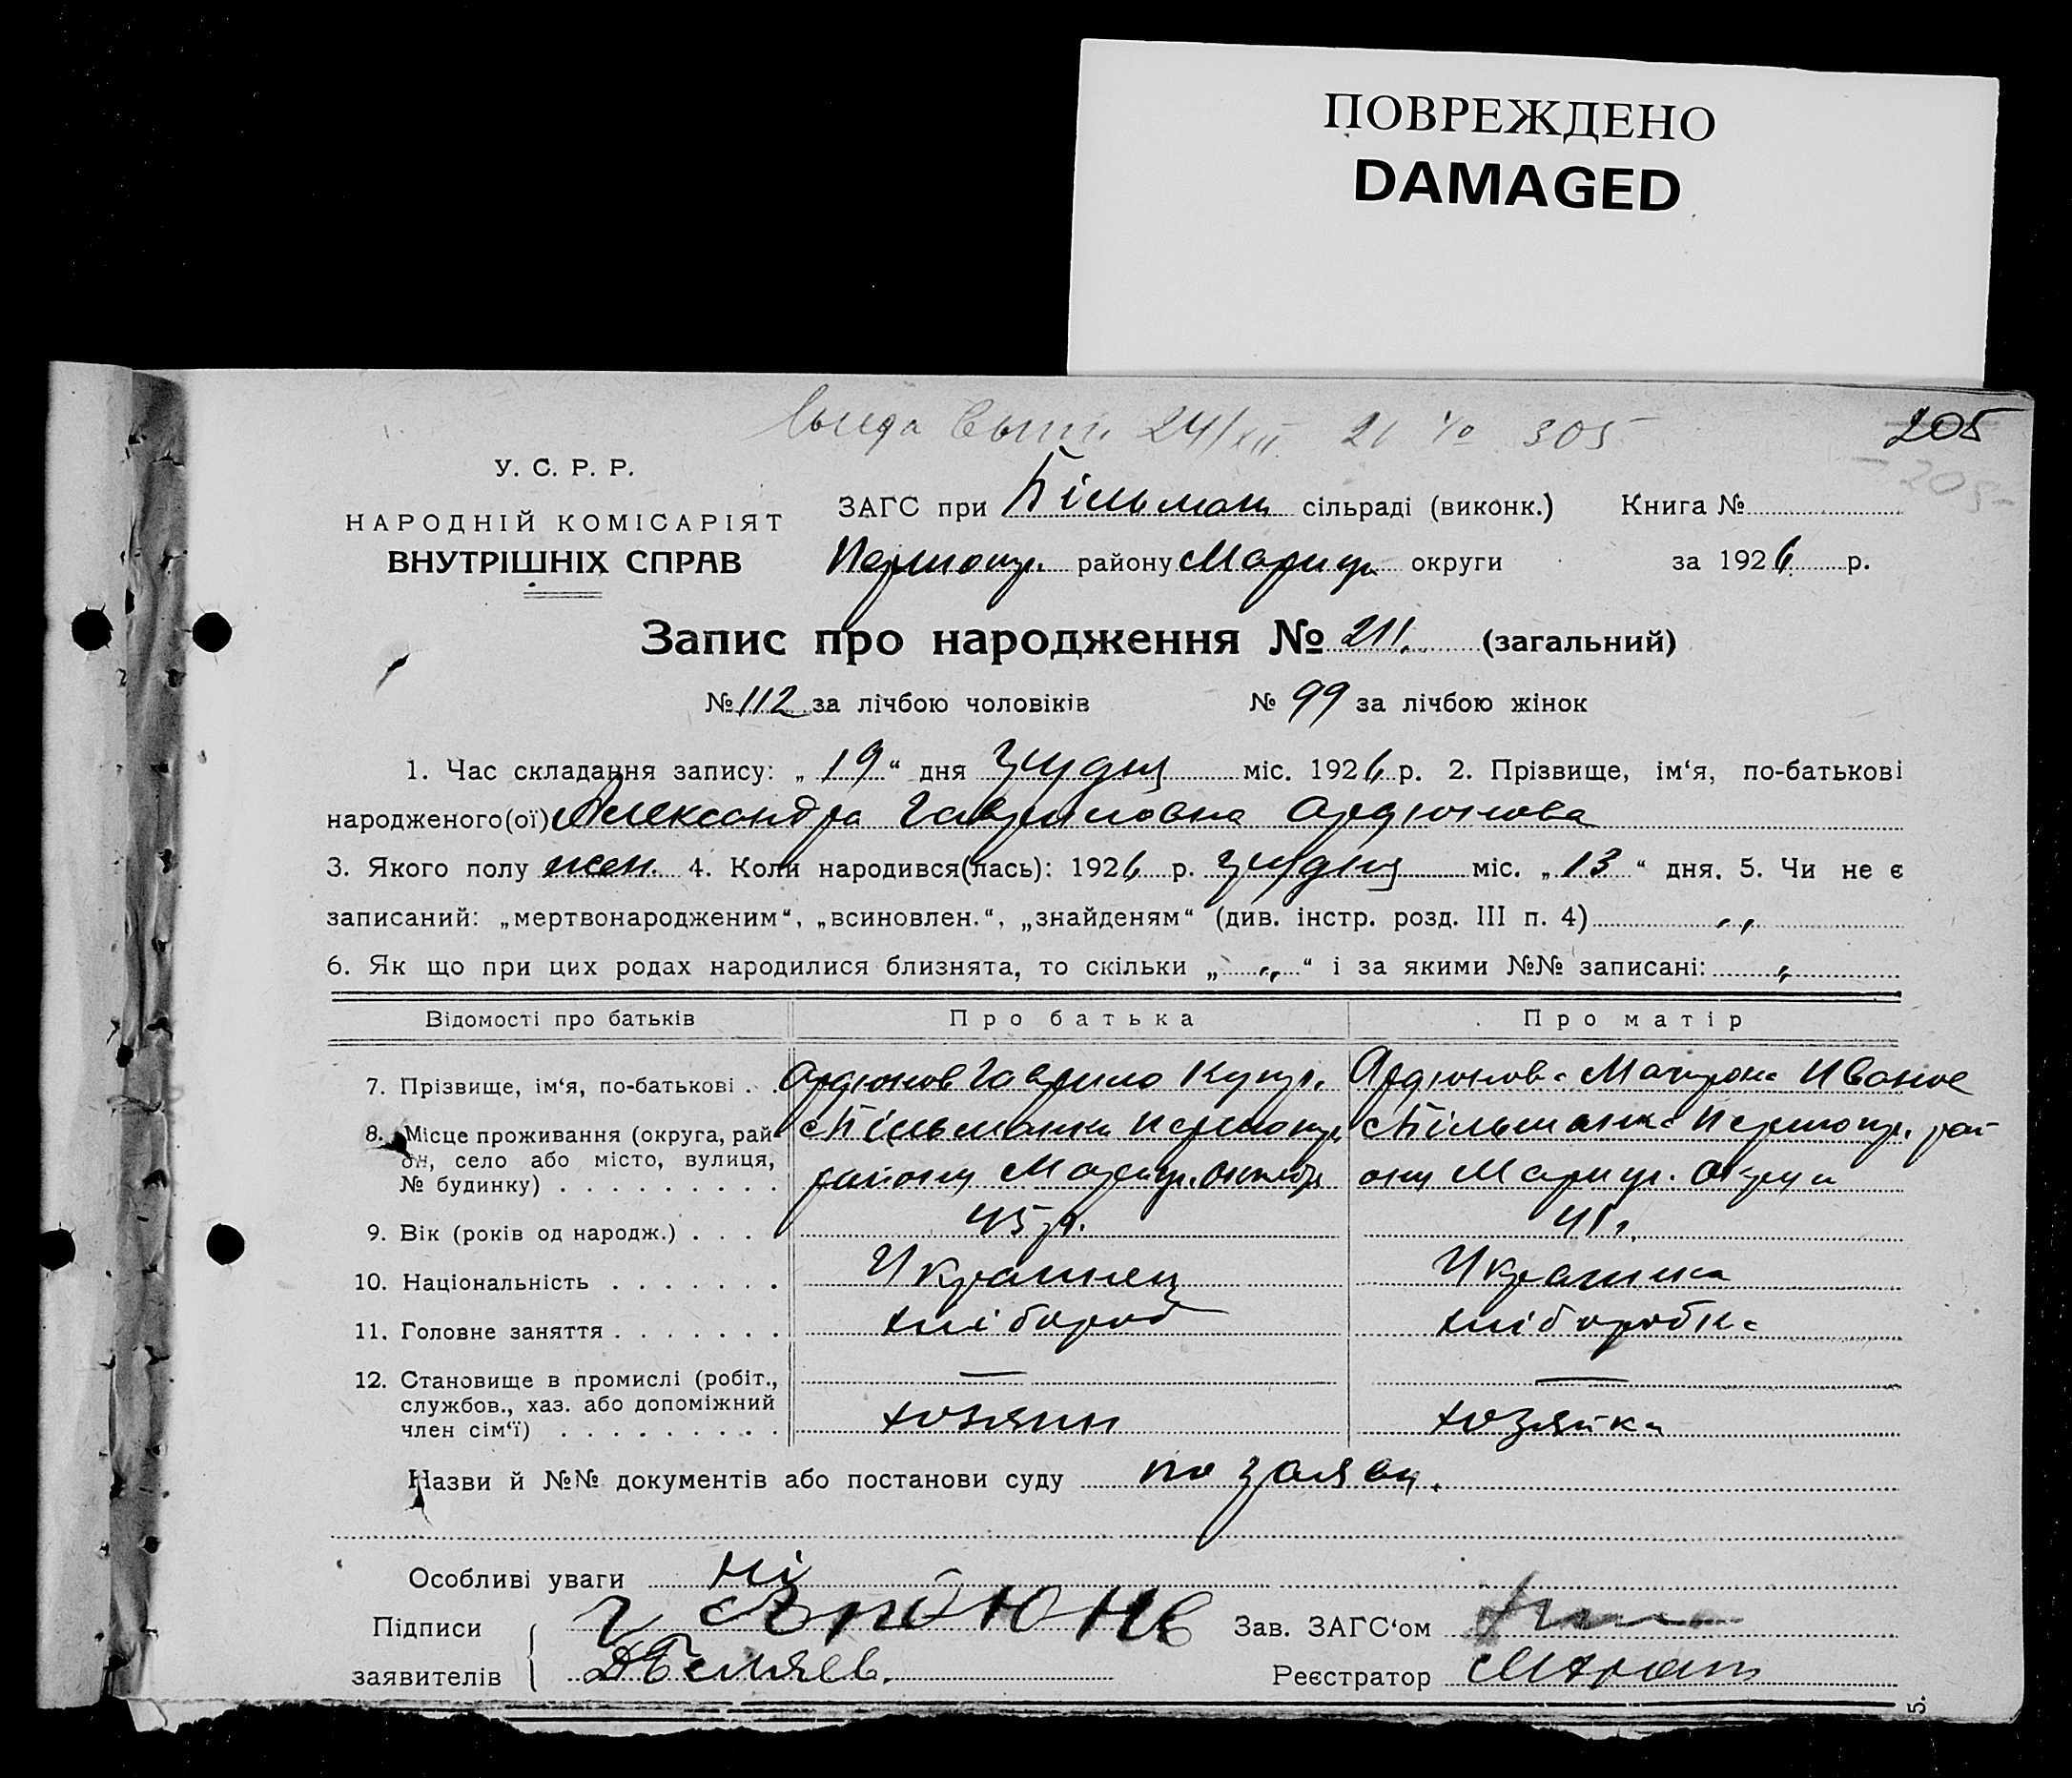 ПОВРЕЖДЕНО
DAMAGED
24/XII 305
205
205
У. С. Р. Р.
НАРОДНІЙ КОМІСАРІЯТ
ВНУТРІШНІХ СПРАВ
ЗАГС при Більман сільраді (виконк.) Книга №
району Маріуп. округи за 1926 р.
Запис про народження № 211. (загальний)
№ 112 за лічбою чоловіків № 99 за лічбою жінок
1. Час складання запису: „ 19 “ дня грудня міс. 1926 р. 2. Прізвище, ім‘я, по-батькові
народженого(ої) Александра Гавриловна Ардюнова
3. Якого полу жен. 4. Коли народився(лась): 1926 р. грудня міс. „ 13 “ дня. 5. Чи не є
записаний: „мертвонародженим“, „всиновлен.“, „знайденям“ (див. інстр. розд. III п. 4) „
6. Як що при цих родах народилися близнята, то скільки „ „ “ і за якими №№ записані: „
Відомості про батьків Про батька Про матір
7. Прізвище, ім‘я, по-батькові . . Ардюнов Гаврило Купр. Ардюнова Мотрона Иванов
8. Місце проживання (округа, рай- с Більманки с Більманка рай
он, село або місто, вулиця, району Маріуп. округи ону Маріуп. округи
№ будинку) . . . . . . . . .
9. Вік (років од народж.) . . . . 45 р. 41 р.
10. Національність . . . . . . . Украинец Украинка
11. Головне заняття . . . . . . . хлібороб хліборобка
12. Становище в промислі (робіт., — —
службов., хаз. або допоміжний
член сім‘ї) . . . . . . . . . хозяин хозяйка
Назви й №№ документів або постанови суду по заяви.
Особливі уваги ні
Підписи Г Ардюнв Зав. ЗАГС‘ом
заявителів Д Беляев. Реєстратор
5.